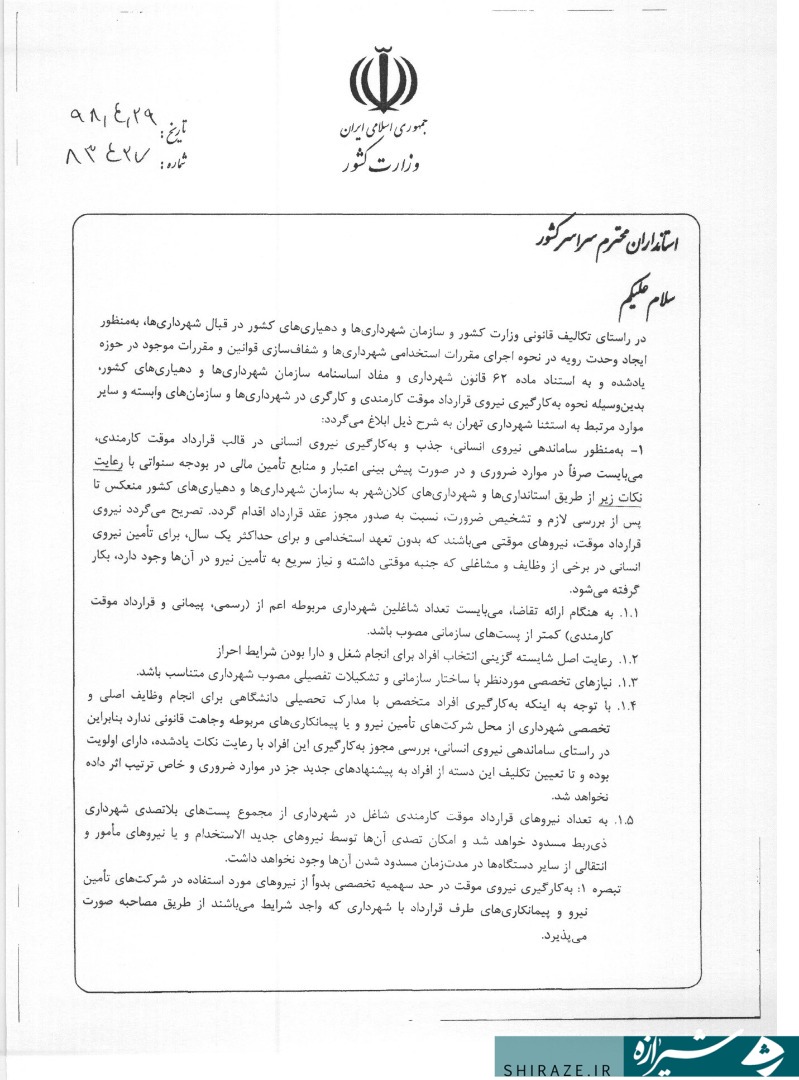 جمهوری اسلامی ایران
وزارت کشور
تاریخ: ۹۸,٤,۲۹
شماره: ۸۳٤۲۷
استانداران محترم سراسر کشور
سلام علیکم
در راستای تکالیف قانونی وزارت کشور و سازمان شهرداری‌ها و دهیاری‌های کشور در قبال شهرداری‌ها، به‌منظور
ایجاد وحدت رویه در نحوه اجرای مقررات استخدامی شهرداری‌ها و شفاف‌سازی قوانین و مقررات موجود در حوزه
یادشده و به استناد ماده ۶۲ قانون شهرداری و مفاد اساسنامه سازمان شهرداری‌ها و دهیاری‌های کشور،
بدین‌وسیله نحوه به‌کارگیری نیروی قرارداد موقت کارمندی و کارگری در شهرداری‌ها و سازمان‌های وابسته و سایر
موارد مرتبط به استثنا شهرداری تهران به شرح ذیل ابلاغ می‌گردد:
۱- به‌منظور ساماندهی نیروی انسانی، جذب و به‌کارگیری نیروی انسانی در قالب قرارداد موقت کارمندی،
می‌بایست صرفاً در موارد ضروری و در صورت پیش بینی اعتبار و منابع تأمین مالی در بودجه سنواتی با رعایت
نکات زیر از طریق استانداری‌ها و شهرداری‌های کلان‌شهر به سازمان شهرداری‌ها و دهیاری‌های کشور منعکس تا
پس از بررسی لازم و تشخیص ضرورت، نسبت به صدور مجوز عقد قرارداد اقدام گردد. تصریح می‌گردد نیروی
قرارداد موقت، نیروهای موقتی می‌باشند که بدون تعهد استخدامی و برای حداکثر یک سال، برای تأمین نیروی
انسانی در برخی از وظایف و مشاغلی که جنبه موقتی داشته و نیاز سریع به تأمین نیرو در آن‌ها وجود دارد، بکار
گرفته می‌شود.
۱.۱. به هنگام ارائه تقاضا، می‌بایست تعداد شاغلین شهرداری مربوطه اعم از (رسمی، پیمانی و قرارداد موقت
کارمندی) کمتر از پست‌های سازمانی مصوب باشد.
۱.۲. رعایت اصل شایسته گزینی انتخاب افراد برای انجام شغل و دارا بودن شرایط احراز
۱.۳. نیازهای تخصصی موردنظر با ساختار سازمانی و تشکیلات تفصیلی مصوب شهرداری متناسب باشد.
۱.۴. با توجه به اینکه به‌کارگیری افراد متخصص با مدارک تحصیلی دانشگاهی برای انجام وظایف اصلی و
تخصصی شهرداری از محل شرکت‌های تأمین نیرو و یا پیمانکاری‌های مربوطه وجاهت قانونی ندارد بنابراین
در راستای ساماندهی نیروی انسانی، بررسی مجوز به‌کارگیری این افراد با رعایت نکات یادشده، دارای اولویت
بوده و تا تعیین تکلیف این دسته از افراد به پیشنهادهای جدید جز در موارد ضروری و خاص ترتیب اثر داده
نخواهد شد.
۱.۵. به تعداد نیروهای قرارداد موقت کارمندی شاغل در شهرداری از مجموع پست‌های بلاتصدی شهرداری
ذی‌ربط مسدود خواهد شد و امکان تصدی آن‌ها توسط نیروهای جدید الاستخدام و یا نیروهای مأمور و
انتقالی از سایر دستگاه‌ها در مدت‌زمان مسدود شدن آن‌ها وجود نخواهد داشت.
تبصره ۱: به‌کارگیری نیروی موقت در حد سهمیه تخصصی بدواً از نیروهای مورد استفاده در شرکت‌های تأمین
نیرو و پیمانکاری‌های طرف قرارداد با شهرداری که واجد شرایط می‌باشند از طریق مصاحبه صورت
می‌پذیرد.
SHIRAZE.IR
شیرازه